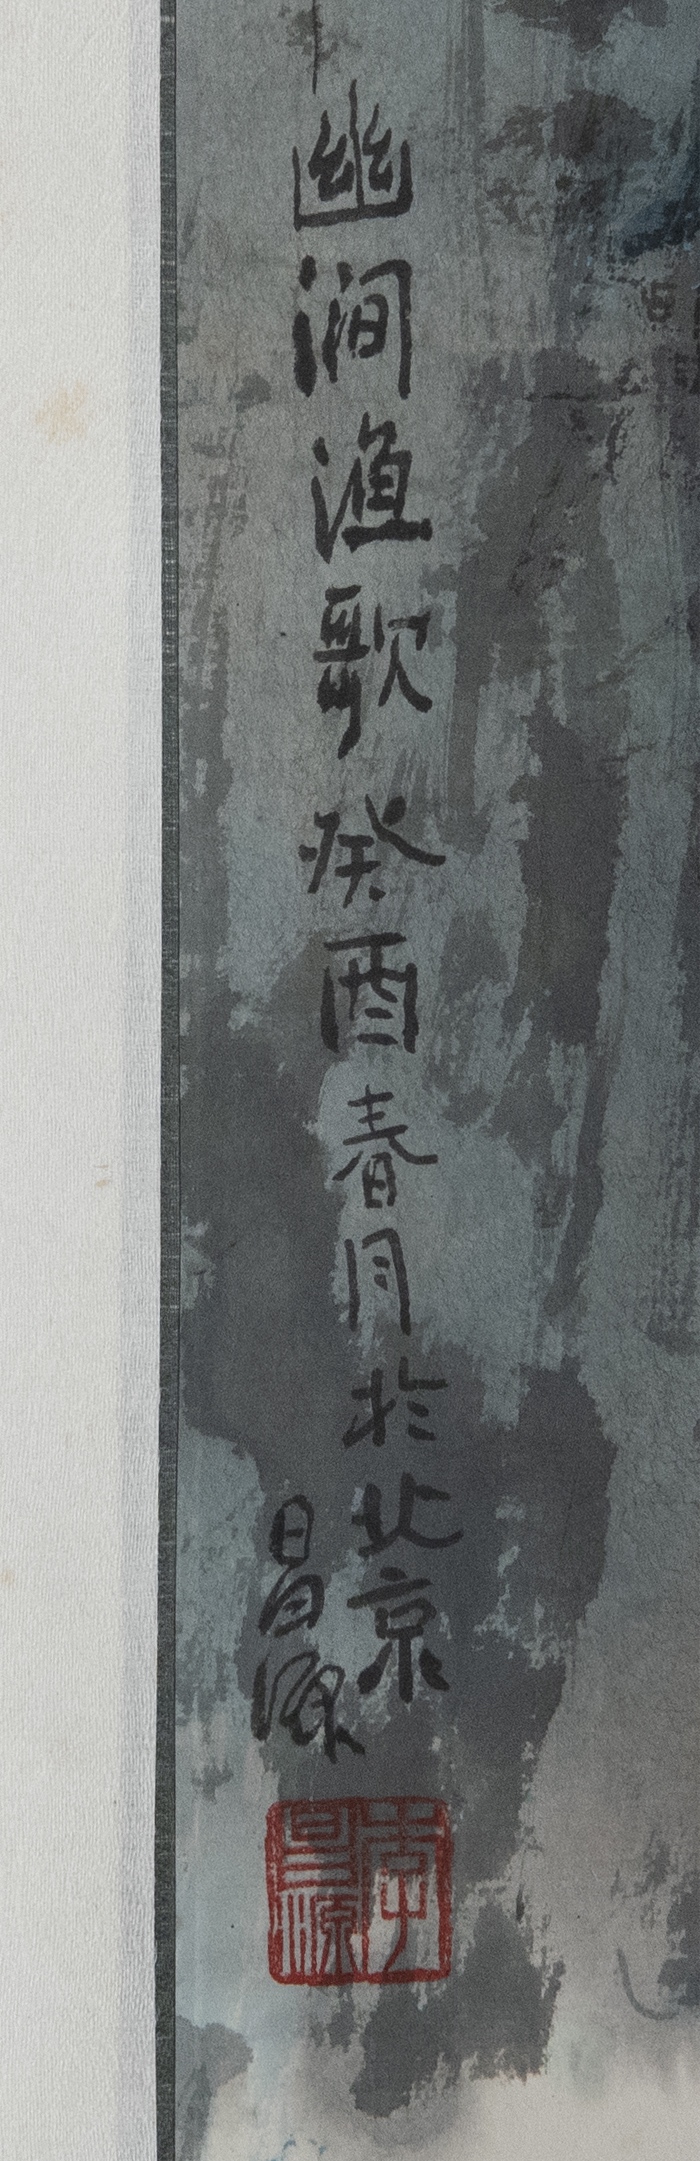 幽涧渔歌癸酉春月於北京
昌源
李昌源